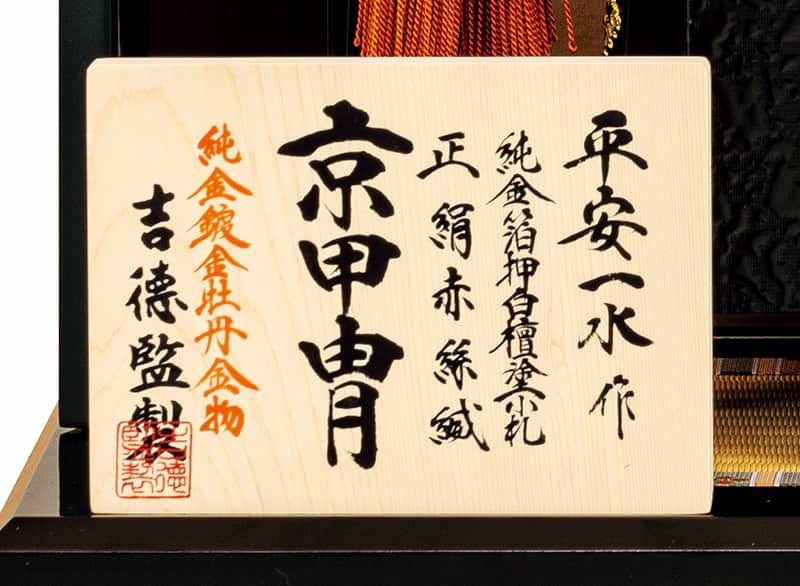 平安一水作
純金箔押白檀塗小札
正絹赤絲縅
京甲冑
純金鍍金牡丹金物
吉德監製